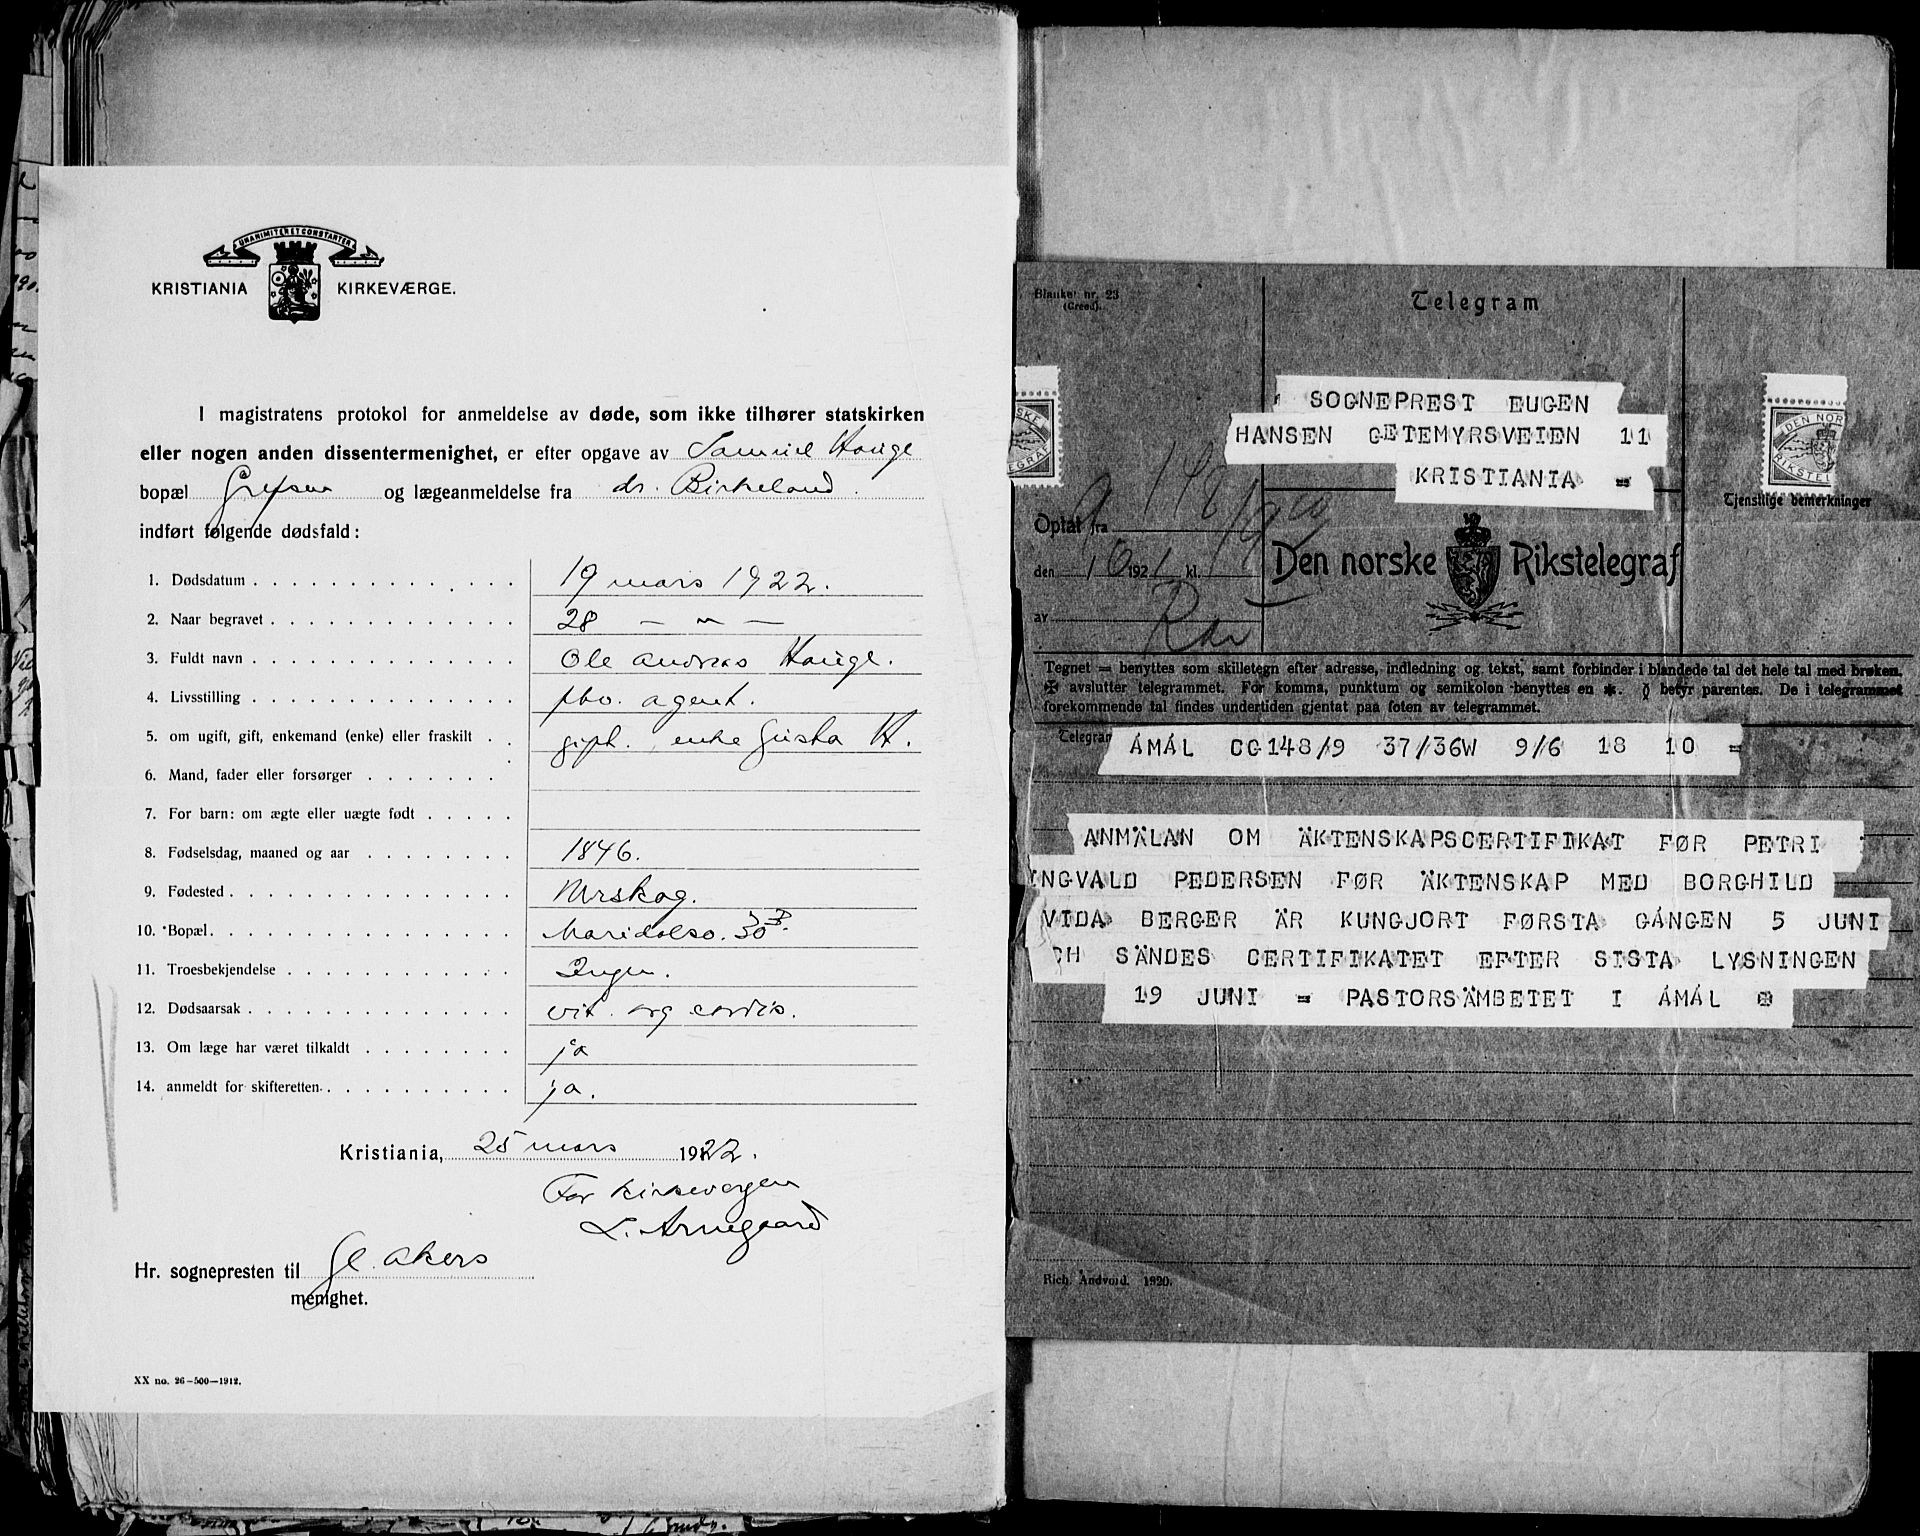 UNANIMITER ET CONSTANTER
KRISTIANIA KIRKEVÆRGE.
I magistratens protokol for anmeldelse av døde, som ikke tilhører statskirken
eller nogen anden dissentermenighet, er efter opgave av Samuel Hauge
bopæl Grefsen og lægeanmeldelse fra dr. Birkeland.
indført følgende dødsfald:
1. Dødsdatum 19 mars 1922.
2. Naar begravet 28 — " —
3. Fuldt navn Ole Andreas Hauge.
4. Livsstilling fhv. agent.
5. om ugift, gift, enkemand (enke) eller fraskilt gift. enke Gusta H.
6. Mand, fader eller forsørger
7. For barn: om ægte eller uægte født
8. Fødselsdag, maaned og aar 1846.
9. Fødested Urskog.
10. Bopæl Maridalsv. 30 B.
11. Troesbekjendelse Ingen.
12. Dødsaarsak vit. org cordis.
13. Om læge har været tilkaldt ja
14. anmeldt for skifteretten ja.
Kristiania, 25 mars 1922.
For kirkevergen
L. Arnegaard
Hr. sognepresten til Gl. Akers
menighet.
XX no. 26—500—1912.
Blanket nr. 23
(Greed).
Telegram
SOGNEPREST EUGEN
HANSEN GETEMYRSVEIEN 11
KRISTIANIA =
Tjenstlige bemerkninger
Optat fra
den 10/ 1921 kl.
av
Den norske Rikstelegraf
Tegnet = benyttes som skilletegn efter adresse, indledning og tekst, samt forbinder i blandede tal det hele tal med brøken.
✠ avslutter telegrammet. For komma, punktum og semikolon benyttes en ✱. () betyr parentes. De i telegrammet
forekommende tal findes undertiden gjentat paa foten av telegrammet.
Telegram
ÅMÅL CG148/9 37/36W 9/6 18 10 =
ANMÄLAN OM ÄKTENSKAPSCERTIFIKAT FØR PETRI
INGVALD PEDERSEN FØR ÄKTENSKAP MED BORGHILD
VIDA BERGER ÄR KUNGJORT FØRSTA GÅNGEN 5 JUNI
CH SÄNDES CERTIFIKATET EFTER SISTA LYSNINGEN
19 JUNI = PASTORSÄMBETET I ÅMÅL ✠
Rich. Andvord. 1920.